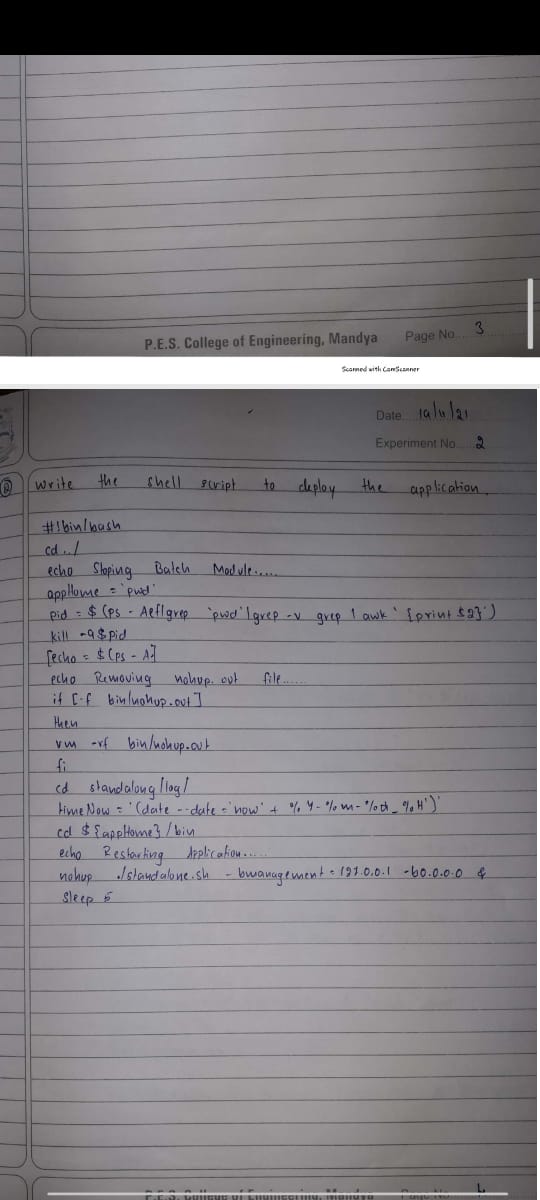 P.E.S. College of Engineering, Mandya Page No.... 3
Scanned with CamScanner
Date: 19/11/21
Experiment No...... 2
② write the shell script to deploy the application.
#!bin/bash
cd ../
echo Stoping Batch Module.....
appHome = `pwd`
pid = $ (ps - Aef|grep `pwd`|grep -v grep | awk ` {print $2}')
kill -9 $pid
[echo = $ (PS - A]
echo Removing nohup. out file......
if [-f bin/nohup.out]
then
rm -rf bin/nohup.out
fi
cd standalong/log/
timeNow = `(date --date = 'now' + % Y-%m-%d_%H')`
cd $ {appHome}/bin
echo Restarting Application.....
nohup ./standalone.sh - bmanagement = 127.0.0.1 -b0.0.0.0 &
sleep 5
P.E.S. College of Engineering, Mandya